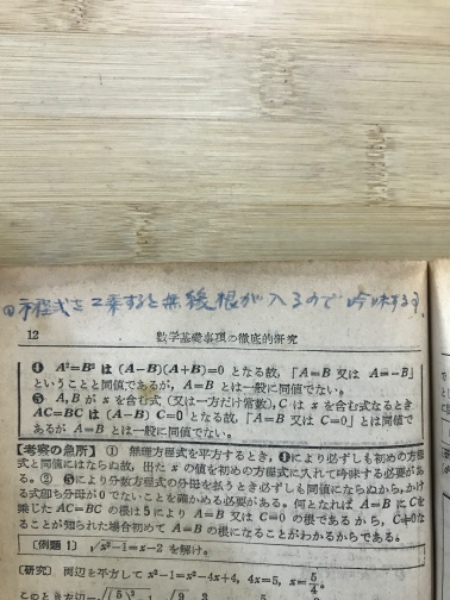 方程式を2乗すると無縁根が入るので吟味する。
12 数学基礎事項の徹底的研究
❹ A²=B² は (A−B)(A+B)=0 となる故，「A=B 又は A=−B」
ということと同値であるが，A=B とは一般に同値でない。
❺ A,B が x を含む式（又は一方だけ常数），C は x を含む式なるとき
AC=BC は (A−B) C=0 となる故，「A=B 又は C=0」とは同値で
あるが A=B とは一般に同値でない。
【考察の急所】 ① 無理方程式を平方するとき，❹により必ずしも初めの方程
式と同値にはならぬ故，出た x の値を初めの方程式に入れて吟味する必要があ
る。② ❺により分数方程式の分母を払うとき必ずしも同値にならぬから，かけ
る式即ち分母が0でないことを確かめる必要がある。何となれば A=B に C を
乗じた AC=BC の根は❺により A=B 又は C=0 の根であるから，C≠0な
ることが知られた場合初めて A=B の根になることがわかるからである。
〔例題 1〕 √x²−1=x−2 を解け。
〔研究〕 両辺を平方して x²−1=x²−4x+4, 4x=5, x=5/4.
このとき左辺=